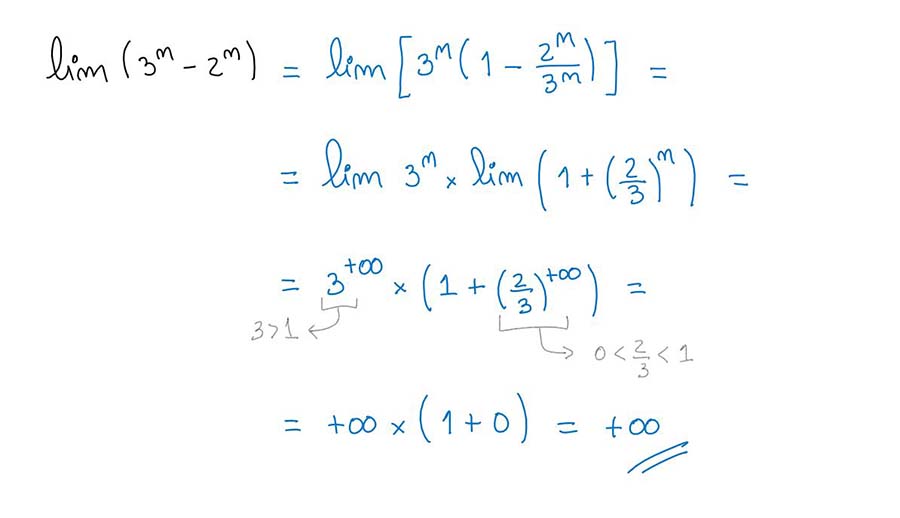 lim (3ⁿ − 2ⁿ) = lim [3ⁿ (1 − 2ⁿ/3ⁿ)] =
= lim 3ⁿ × lim (1 + (2/3)ⁿ) =
= 3^+∞ × (1 + (2/3)^+∞) =
3>1 0 < 2/3 < 1
= +∞ × (1 + 0) = +∞